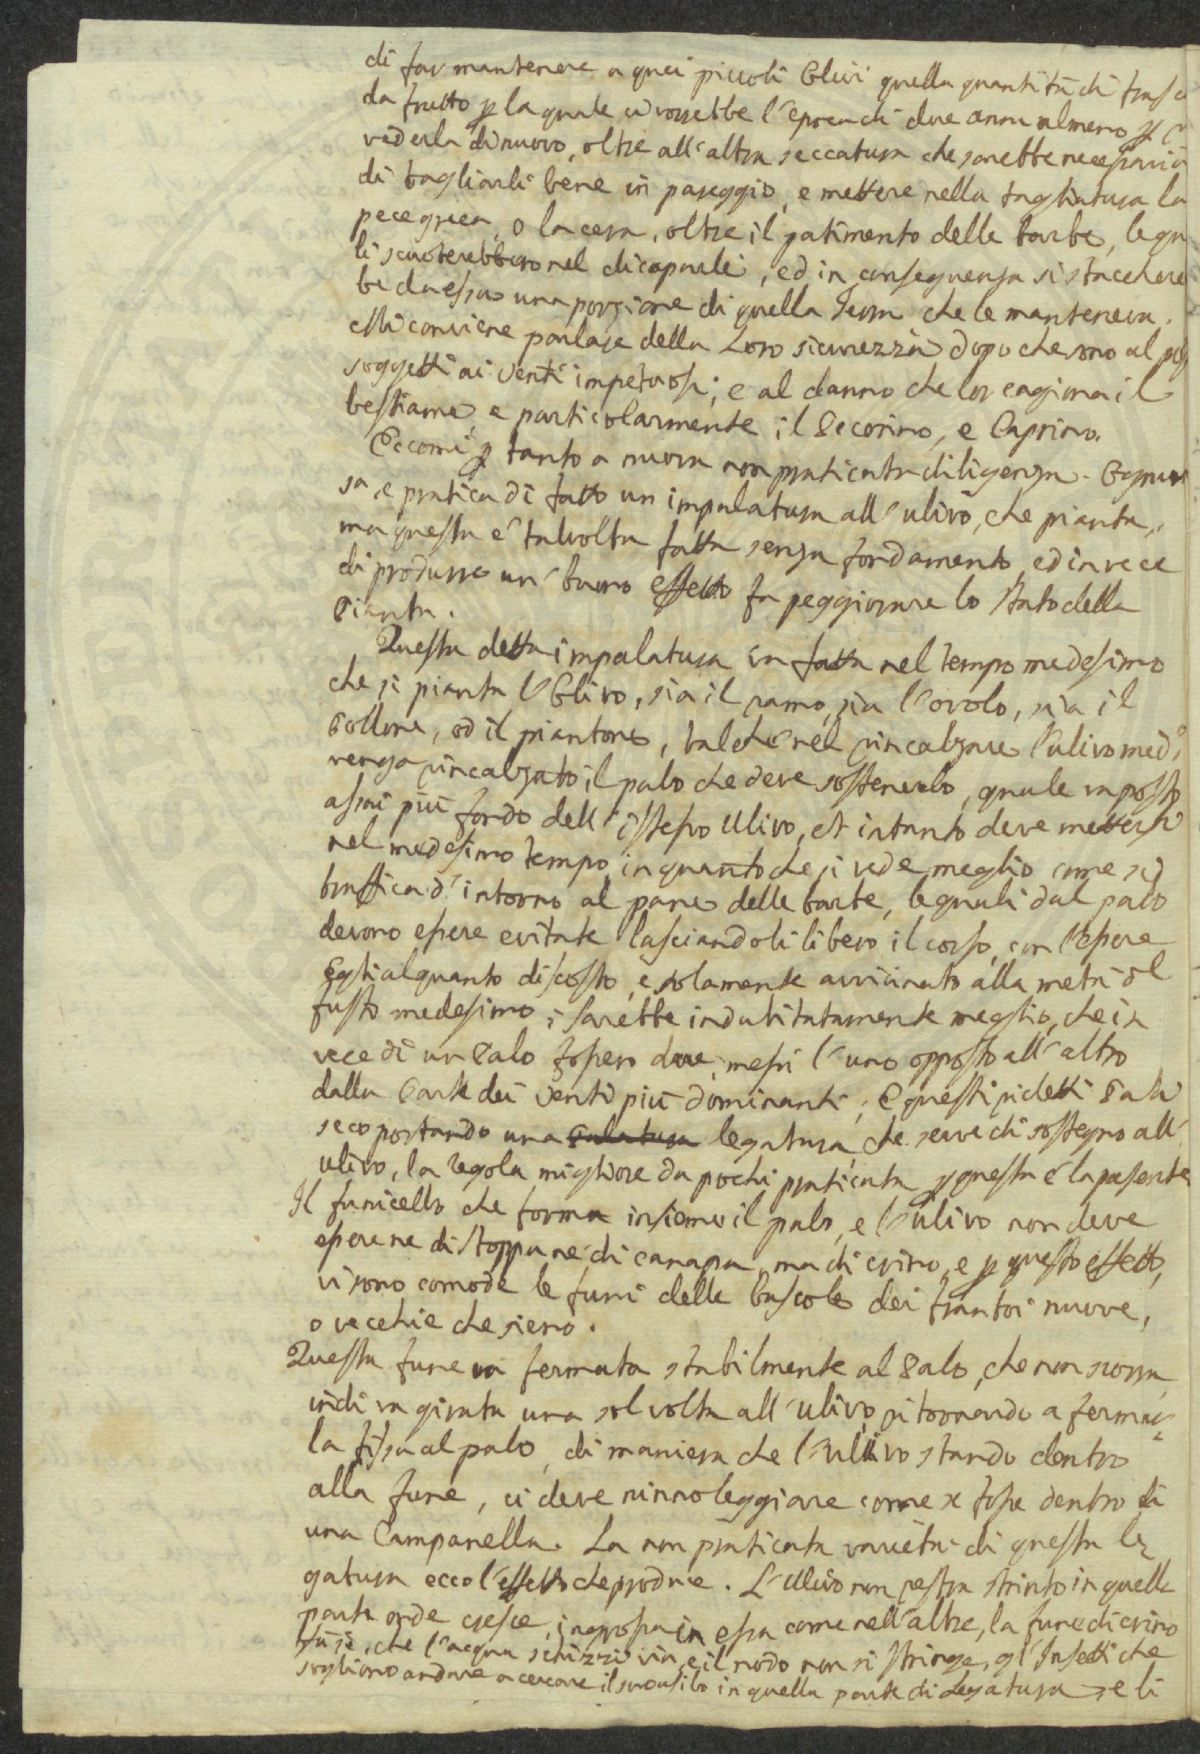 di far mantenere a quei piccoli Olivi quella quantità di
da frutto p la quale ci vorrebbe l'epoca di due anni almeno p
vederla di nuovo, oltre all'altra seccatura che sarebbe necessaria
di tagliarli bene in pareggio, e mettere nella tagliatura la
pece greca, o la cera, oltre il patimento delle barbe, le qua
li scuoterebbero nel dicaparli, ed in conseguenza si stacchere
be da esse una porzione di quella Terra che le manteneva.
Mi conviene parlare della Loro sicurezza dopo che sono al
soggetti ai Venti impetuosi; e al danno che lor cagiona il
bestiame, e particolarmente il Pecorino, e Caprino.
Eccomi p tanto a nuova non praticata diligenza. Ognun
sa, e pratica di fatto un impalatura all'ulivo, che pianta,
ma questa e' talvolta fatta senza fondamento, ed invece
di produrre un' buono effetto fa peggiorare lo Stato della
Pianta.
Questa detta impalatura va fatta nel tempo medesimo
che si pianta l'Olivo, sia il ramo, sia l'ovolo, sia il
Pollone, od il piantone, talche' nel rincalzare l'ulivo med.o
venga rincalzato il palo che deve sostenerlo, quale va posto
assai più fondo dell'istesso Ulivo, et intanto deve mettersi
nel medesimo tempo, in quanto che si vede meglio come si
traffica d'intorno al pane delle barbe, le quali dal palo
devono essere evitate lasciandoli libero il corso, con l'essere
Egli alquanto discosto, e solamente avvicinato alla metà del
fusto medesimo; sarebbe indubitatamente meglio, che in
vece di un Palo fossero due, messi l'uno opposto all'altro
dalla Parte dei Venti più dominanti; E questi ridetti Pali
seco portando una palatura legatura, che serve di sostegno all'
ulivo, la regola migliore da pochi praticata p questa e' la presente
Il funicello che forma insieme il palo, e l'ulivo non deve
essere ne di stoppa ne' di canapa, ma di crino, e p questo effetto,
vi sono comode le funi delle buscole dei frantoi nuove,
o vecchie che sieno.
Questa fune va fermata stabilmente al Palo, che non scorra
indi va girata una sol volta all'ulivo, ritornando a fermar=
la fissa al palo, di maniera che l'Ulivo stando dentro
alla fune, ci deve ninnoleggiare come se fosse dentro di
una Campanella. La non praticata varietà di questa le=
gatura ecco l'effetto che produce. L'Ulivo non restra strinto in quella
parte onde cresce, ingrossa in essa come nell'altre, la fune di crino
fa sì, che l'acqua schizzi via, e il nodo non si stringe, gl'Insetti che
sogliono andare a cercare il suo asilo in quella parte di Legatura, e li